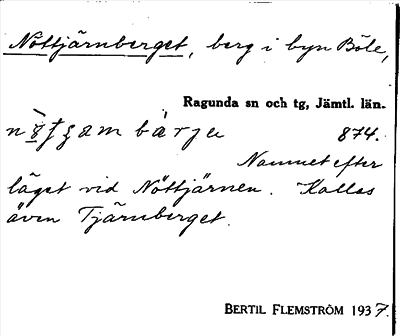 Nöttjärnberget, berg i byn Böle,
Ragunda sn och tg, Jämtl. län.
874.
Namnet efter
läget vid Nöttjärnen. Kallas
även Tjärnberget.
BERTIL FLEMSTRÖM 1937.